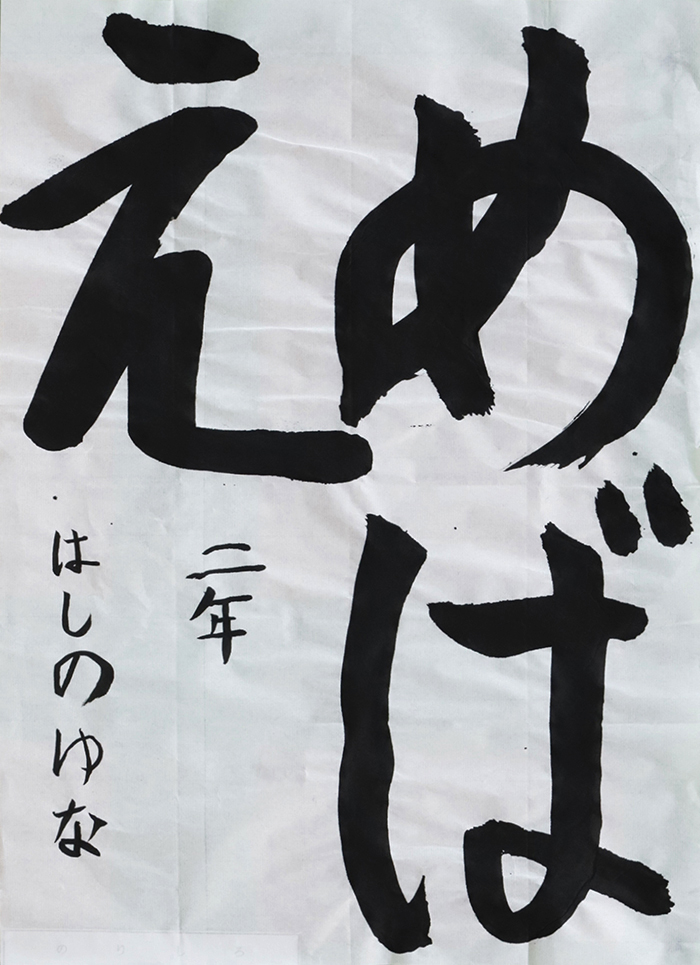 めば
え
二年
はしのゆな